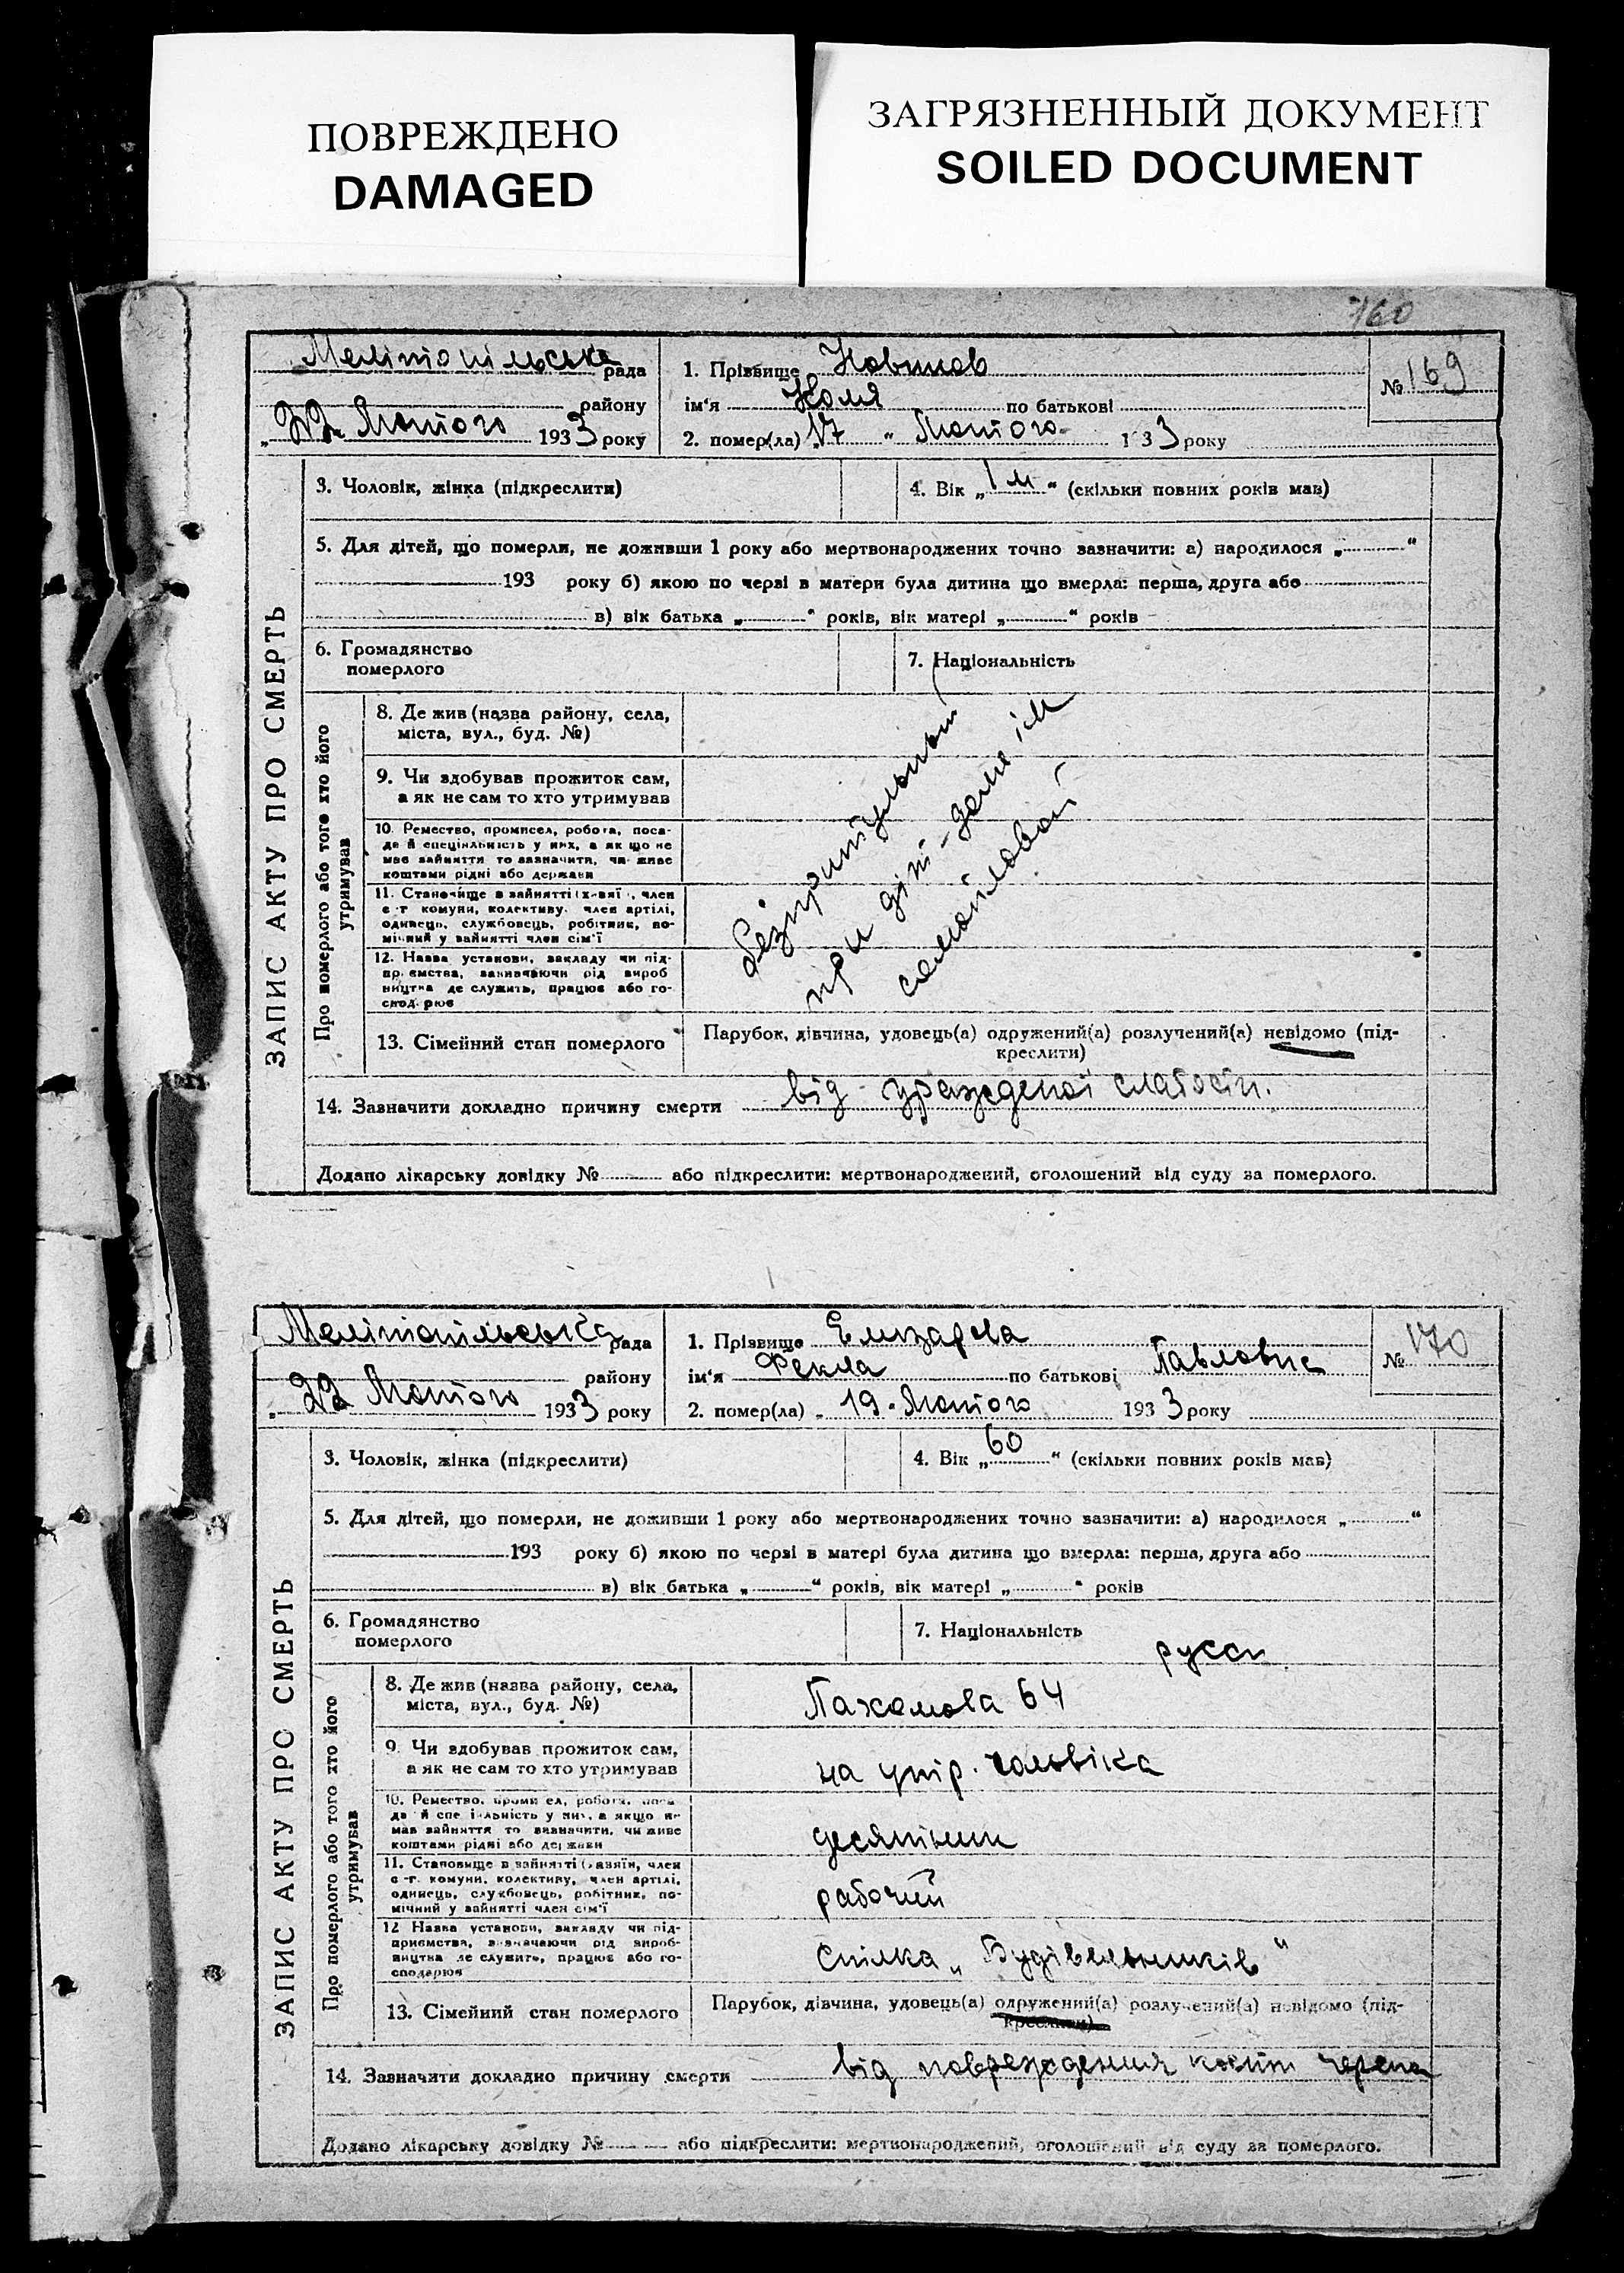 ПОВРЕЖДЕНО
DAMAGED
ЗАГРЯЗНЕННЫЙ ДОКУМЕНТ
SOILED DOCUMENT
160
Мелітопільська рада
району
„22 Лютого 1933 року
1. Прізвище Новиков
ім'я Коля по батькові
2. помер(ла) „17 “ Лютого 1 33 року
№ 169
ЗАПИС АКТУ ПРО СМЕРТЬ
3. Чоловік, жінка (підкреслити)
4. Вік „1 м“ (скільки повних років мав)
5. Для дітей, що померли, не доживши 1 року або мертвонароджених точно зазначити: а) народилося „ “
193 року б) якою по черзі в матери була дитина що вмерла: перша, друга або
в) вік батька „ “ років, вік матері „ “ років
6. Громадянство
померлого
7. Національність
Про померлого або того хто його
утримував
8. Де жив (назва району, села,
міста, вул., буд. №)
9. Чи здобував прожиток сам,
а як не сам то хто утримував
10. Ремество, промисел, робота, поса-
да й спеціяльність у них, а як що не
має зайняття то зазначити, чи живе
коштами рідні або держави
11. Становище в зайнятті (хазяї , член
с -г комуни, колективу, член артілі,
одинець, службовець, робітник, по-
мічний у зайнятті член сім'ї
12. Назва установи, закладу чи під-
приємства, зазначаючи рід вироб
ництва де служить, працює або го-
сподарює
безпритульный
при діт-доме ім
самойловой
13. Сімейний стан померлого
Парубок, дівчина, удовець(а) одружений(а) розлучений(а) невідомо (під-
креслити)
14. Зазначити докладно причину смерти від урожденої слабости.
Додано лікарську довідку № або підкреслити: мертвонароджений, оголошений від суду за померлого.
Мелітопільська рада
району
„22 Лютого 1933 року
1. Прізвище Елизарова
ім'я Фекла по батькові Павловна
2. помер(ла) „ 19 “ Лютого 1933 року
№ 170
ЗАПИС АКТУ ПРО СМЕРТЬ
3. Чоловік, жінка (підкреслити)
4. Вік „60“ (скільки повних років мав)
5. Для дітей, що померли, не доживши 1 року або мертвонароджених точно зазначити: а) народилося „ “
193 року б) якою по черзі в матері була дитина що вмерла: перша, друга або
в) вік батька „ “ років, вік матері „ “ років
6. Громадянство
померлого
7. Національність
русск.
Про померлого або того хто його
утримував
8. Де жив (назва району, села,
міста, вул., буд. №)
Пахомова 64
9. Чи здобував прожиток сам,
а як не сам то хто утримував
на утр. чоловіка
10. Ремество, промисел, робота, поса
да й спеціяльність у них, а якщо не
мав зайняття то зазначити, чи живе
коштами рідні або держави
десятник
11. Становище в зайнятті (хазяїн, член
с -г. комуни, колективу, член артілі,
одинець, службовець, робітник, по-
мічний у зайнятті член сім'ї
рабочий
12 Назва установи, закладу чи під-
приємства, зазначаючи рід вироб-
ництва де служить, працює або го-
сподарює
Спілка „Будівельників“
13. Сімейний стан померлого
Парубок, дівчина, удовець(а) одружений(а) розлучений(а) невідомо (під-
креслити)
14. Зазначити докладно причину смерти від повреждения черепа
Додано лікарську довідку № або підкреслити: мертвонароджений, оголошений від суду за померлого.